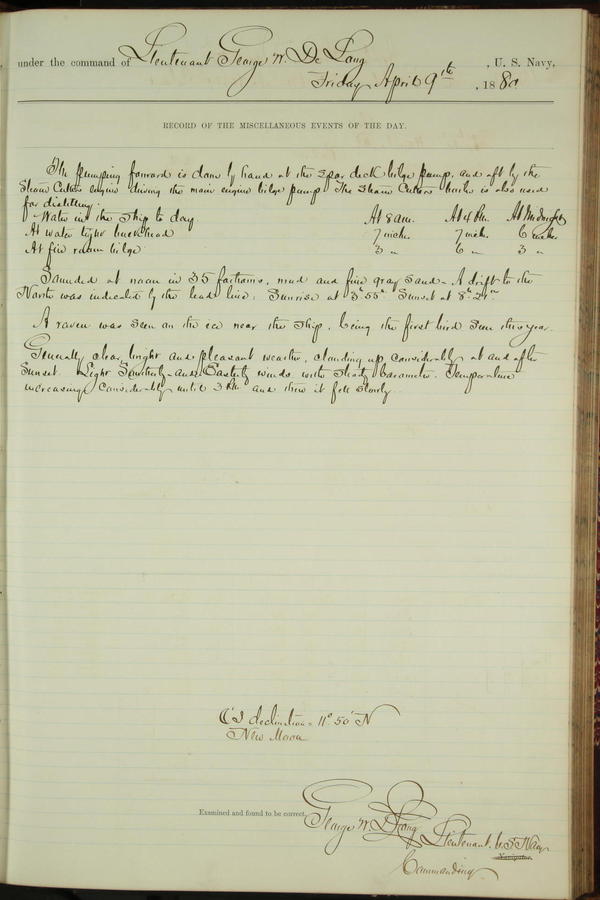 under the command of Lieutenant George W. De Long, U. S. Navy,
Friday April 9th, 1880
RECORD OF THE MISCELLANEOUS EVENTS OF THE DAY.
The pumping forward is done by hand at the spar deck bilge pump, and aft by the
Steam Cutters engine driving the main engine bilge pump. The Steam Cutters boiler is also used
for distilling.
Water in the Ship to day At 8 am. At 4 Pm. At Midnight
At water tight bulkhead 7 inches 7 inches 6 inches
At fire room bilge 3 " 6 " 3 "
Sounded at noon in 35 fathoms, mud and fine gray sand - A drift to the
North was indicated by the lead line. Sunrise at Sunset at
A raven was seen on the ice near the ship, being the first bird seen this year.
Generally clear, bright and pleasant weather, clouding up considerably at and after
Sunset. Light Southerly and Easterly winds with steady barometer. Temperature
increasing considerably until 3 PM and then it fell slowly.
☾'s declination = 11° 50' N
New Moon
Examined and found to be correct.
George W. De Long Lieutenant. U.S. Navy
Navigator.
Commanding.